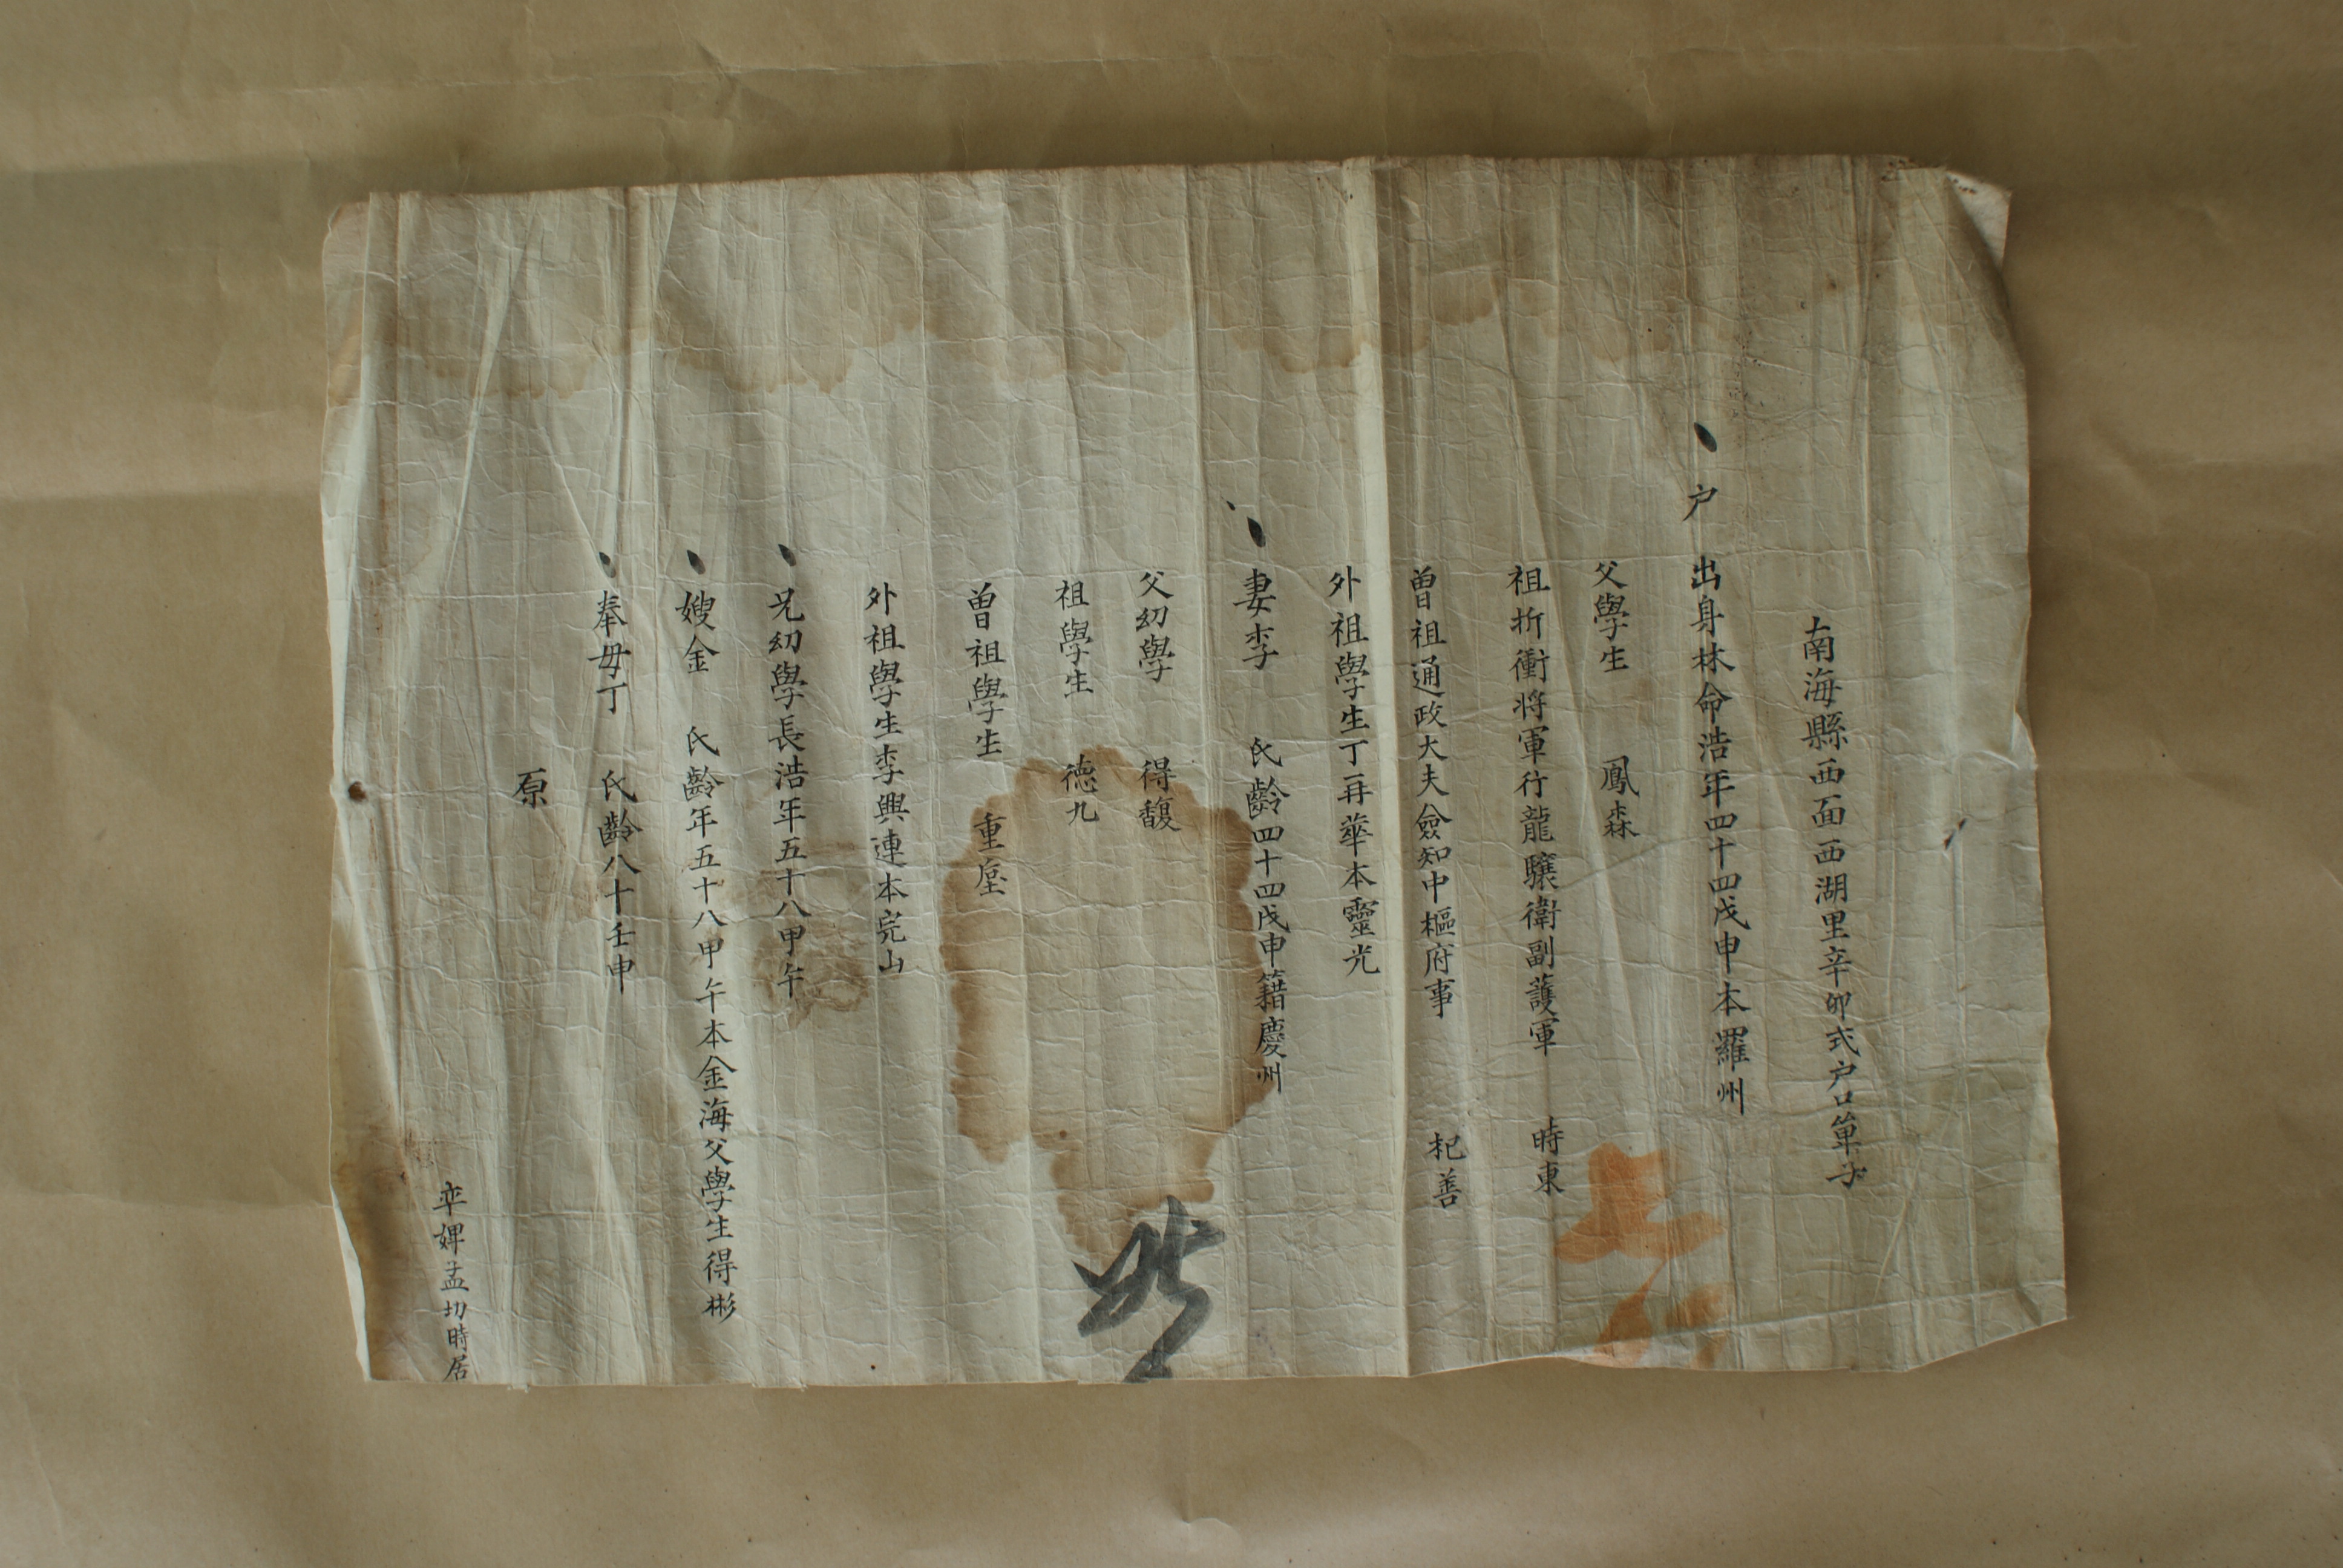 南海縣西面西湖里辛卯式户口單子
户 出身林命浩年四十四戊申本羅州
父學生 鳳森
祖折衝將軍行龍驤衛副護軍 時東
曾祖通政大夫僉知中樞府事 杞善
外祖學生丁再華本靈光
妻李 氏齡四十四戊申籍慶州
父幼學 得馥
祖學生 德九
曾祖學生 重垕
外祖學生李興連本完山
兄幼學長浩年五十八甲午
嫂金 氏齡年五十八甲午本金海父學生得彬
奉母丁 氏齡八十壬申
原
率婢孟切時居